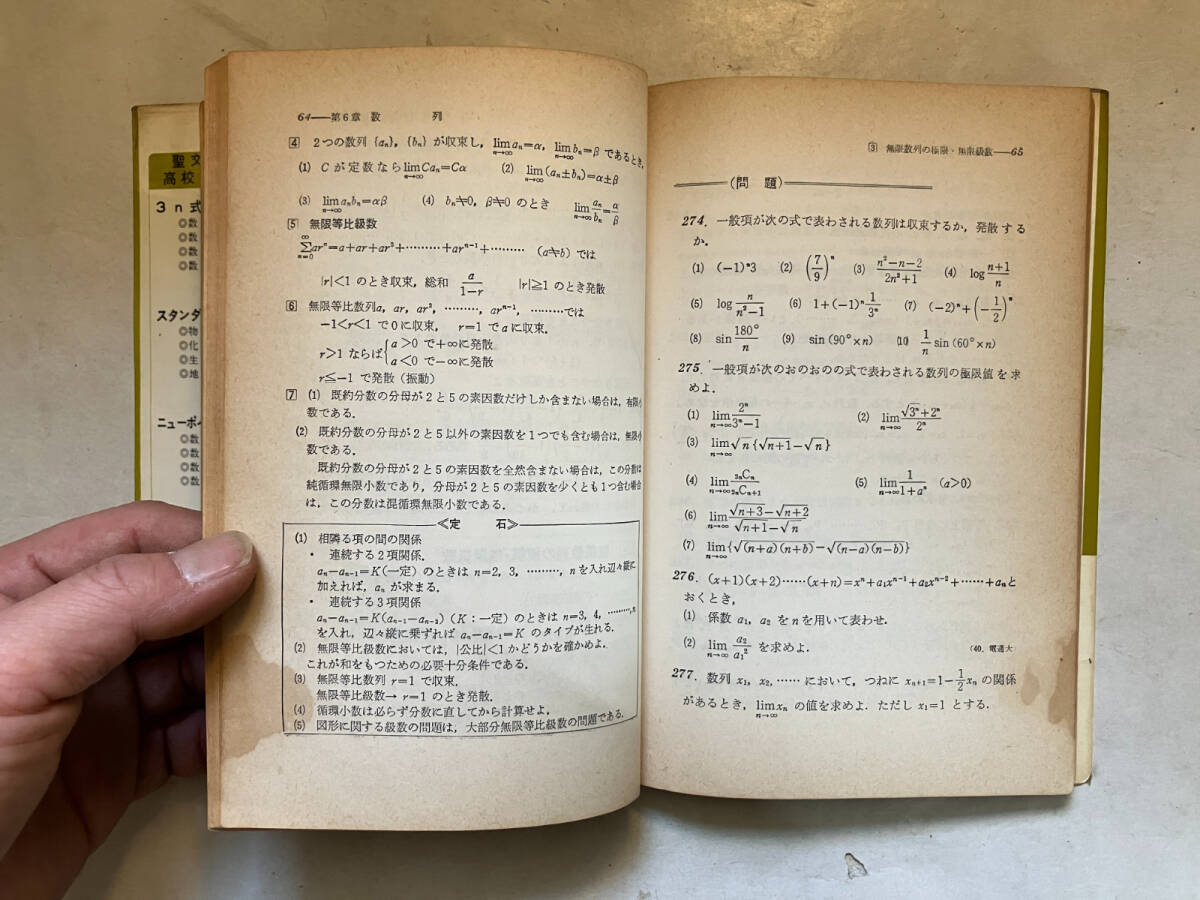 聖文
高校
3n式
◎数
◎数
◎数
◎数
スタンダ
◎物
◎化
◎生
◎地
ニューポイ
◎数
◎数
◎数
◎数
64——第6章 数　　列
4 2つの数列 {aₙ}, {bₙ} が収束し, lim[n→∞] aₙ=α, lim[n→∞] bₙ=β であるとき,
(1) Cが定数なら lim[n→∞] Caₙ=Cα (2) lim[n→∞] (aₙ±bₙ)=α±β
(3) lim[n→∞] aₙbₙ=αβ (4) bₙ≠0, β≠0 のとき lim[n→∞] aₙ/bₙ=α/β
5 無限等比級数
∞Σn=0 arⁿ=a+ar+ar²+………+arⁿ⁻¹+……… (a≠b) では
|r|<1 のとき収束, 総和 a/(1−r) |r|≧1 のとき発散
6 無限等比数列a, ar, ar², ………, arⁿ⁻¹, ………では
−1<r<1 で0に収束, r=1 でaに収束.
r>1 ならば{a>0 で+∞に発散
a<0 で−∞に発散
r≦−1 で発散 (振動)
7 (1) 既約分数の分母が2と5の素因数だけしか含まない場合は, 有限小
数である.
(2) 既約分数の分母が2と5以外の素因数を1つでも含む場合は, 無限小
数である.
既約分数の分母が2と5の素因数を全然含まない場合は, この分数は
純循環無限小数であり, 分母が2と5の素因数を少くとも1つ含む場合
は, この分数は混循環無限小数である.
≪定　石≫
(1) 相隣る項の間の関係
・ 連続する2項関係.
aₙ−aₙ₋₁=K(一定) のときは n=2, 3, ………, n を入れ辺々縦に
加えれば, aₙ が求まる.
・ 連続する3項関係
aₙ−aₙ₋₁=K(aₙ₋₁−aₙ₋₂) (K:一定) のときは n=3, 4, ………, n
を入れ, 辺々縦に乗ずれば aₙ−aₙ₋₁=K のタイプが生れる.
(2) 無限等比級数においては, |公比|<1かどうかを確かめよ.
これが和をもつための必要十分条件である.
(3) 無限等比数列 r=1 で収束.
無限等比級数→ r=1 のとき発散.
(4) 循環小数は必らず分数に直してから計算せよ.
(5) 図形に関する級数の問題は, 大部分無限等比級数の問題である.
3 無限数列の極限・無限級数——65
(問　題)
274. 一般項が次の式で表わされる数列は収束するか, 発散する
か.
(1) (−1)ⁿ3 (2) (7/9)ⁿ (3) (n²−n−2)/(2n²+1) (4) log (n+1)/n
(5) log n/(n²−1) (6) 1+(−1)ⁿ 1/3ⁿ (7) (−2)ⁿ+(−1/2)ⁿ
(8) sin 180°/n (9) sin (90°×n) (10) 1/n sin (60°×n)
275. 一般項が次のおのおのの式で表わされる数列の極限値を求
めよ.
(1) lim[n→∞] 2ⁿ/(3ⁿ−1) (2) lim[n→∞] (√3ⁿ+2ⁿ)/2ⁿ
(3) lim[n→∞] √n{√n+1−√n}
(4) lim[n→∞] ₃ₙCₙ/₂ₙCₙ₊₁ (5) lim[n→∞] 1/(1+aⁿ) (a>0)
(6) lim[n→∞] (√n+3−√n+2)/(√n+1−√n)
(7) lim[n→∞] {√(n+a)(n+b)−√(n−a)(n−b)}
276. (x+1)(x+2)……(x+n)=xⁿ+a₁xⁿ⁻¹+a₂xⁿ⁻²+……+aₙと
おくとき,
(1) 係数 a₁, a₂ をnを用いて表わせ.
(2) lim[n→∞] a₂/a₁² を求めよ. (40. 電通大)
277. 数列 x₁, x₂, …… において, つねに xₙ₊₁=1−1/2xₙ の関係
があるとき, lim[n→∞] xₙ の値を求めよ. ただし x₁=1 とする.